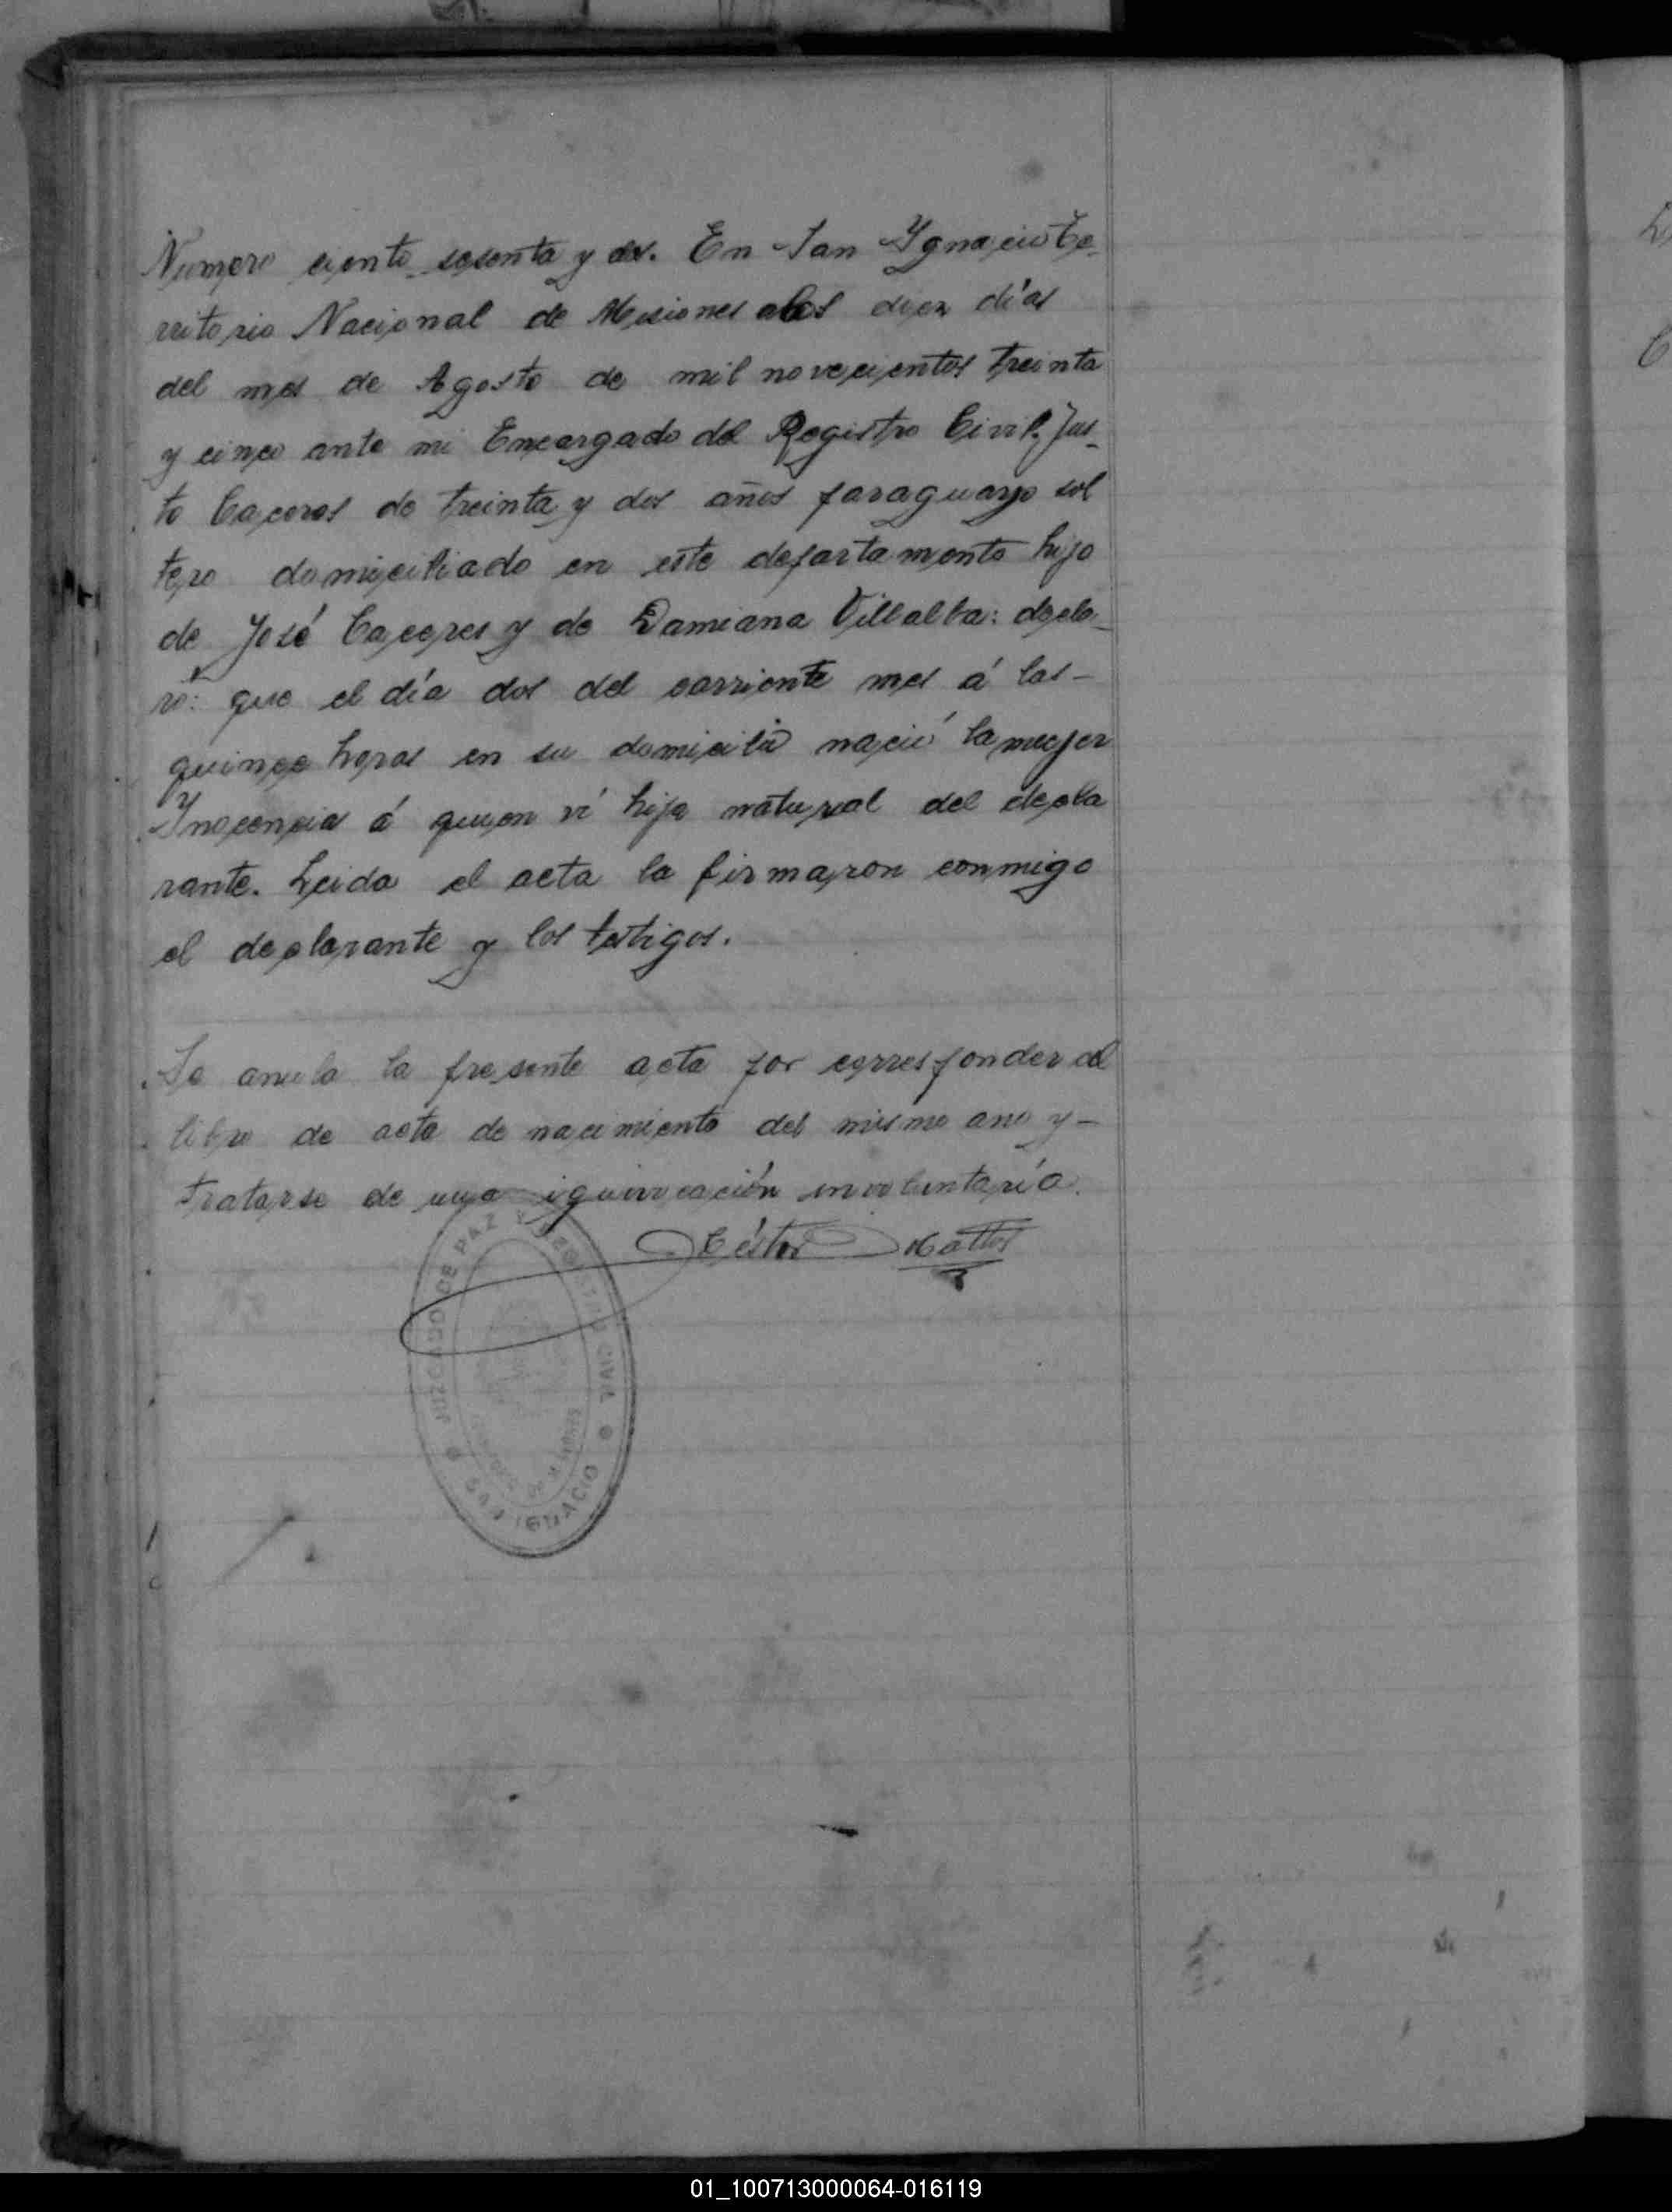 Numero ciento sesenta y dos. En San Ygnacio Te-
rritorio Nacional de Misiones a los diez días
del mes de Agosto de mil novecientos treinta
y cinco ante mi Encargado del Registro Civil. Jus-
to Caceres de treinta y dos años paraguayo sol
tero domiciliado en este departamento hijo
de José Caceres y de Damiana Villalba: decla-
ró: que el día dos del corriente mes á las-
quince horas en su domicilio nació la mujer
Inocencia á quien ví hija natural del decla
rante. Leida el acta la firmaron conmigo
el declarante y los testigos.
Se anula la presente acta por corresponder al
libro de acta de nacimiento del mismo ano y-
tratarse de una iquivocación involuntaría.
Mattos
JUZGADO DE PAZ Y REGISTRO CIVIL
SAN IGNACIO
01_100713000064-016119